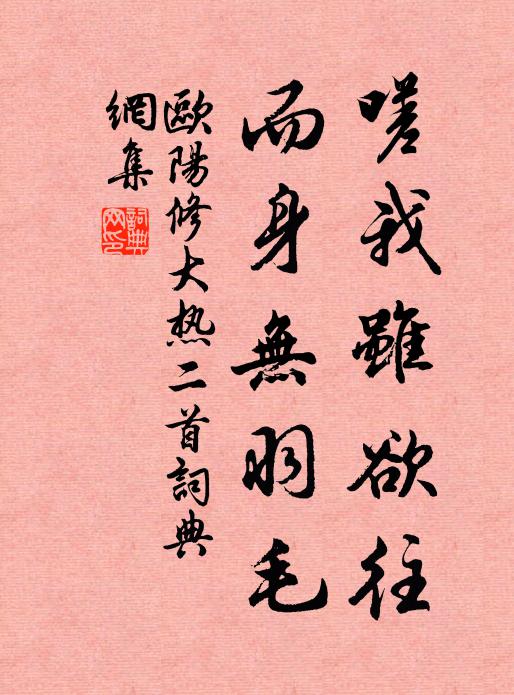 嗟我雖欲往
而身無羽毛
歐陽修大热二首詞典
網集
詞典
网印